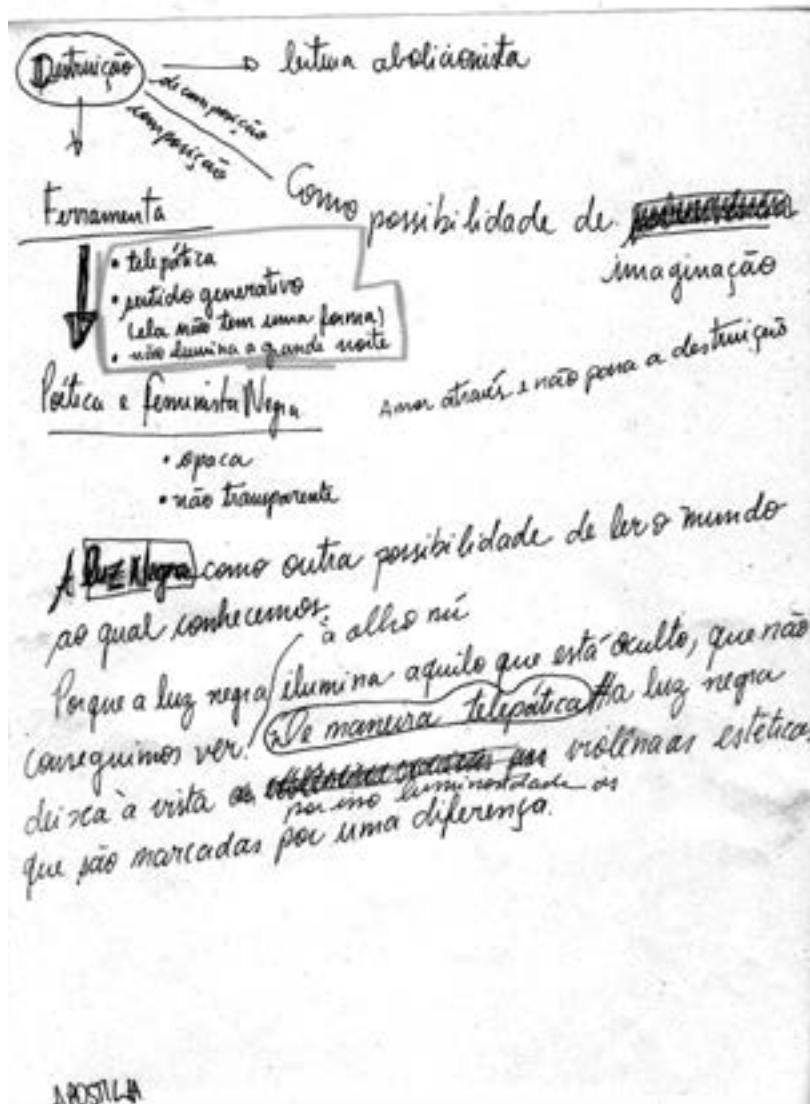 Destruição → leitura abolicionista
decomposição
composição
Ferramenta
Como possibilidade de
imaginação
• telepática
• sentido generativo
(ela não tem uma forma)
• não ilumina a grande noite
Poética e feminista Negra
Amor através e não para a destruição
• opaca
• não transparente
A Luz Negra como outra possibilidade de ler o mundo
ao qual conhecemos.
à olho nú
Porque a luz negra ilumina aquilo que está oculto, que não
conseguimos ver. De maneira telepática a luz negra
deixa à vista violências estéticas
por isso luminosidade as
que são marcadas por uma diferença.
APOSTILA